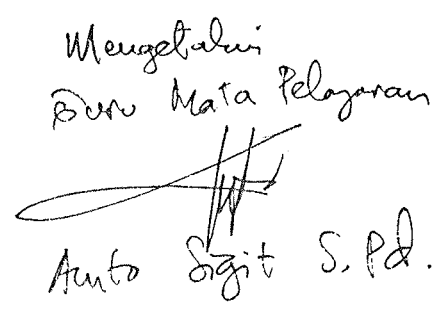 Mengetahui
Guru Mata Pelajaran
Anto Sigit S.Pd.